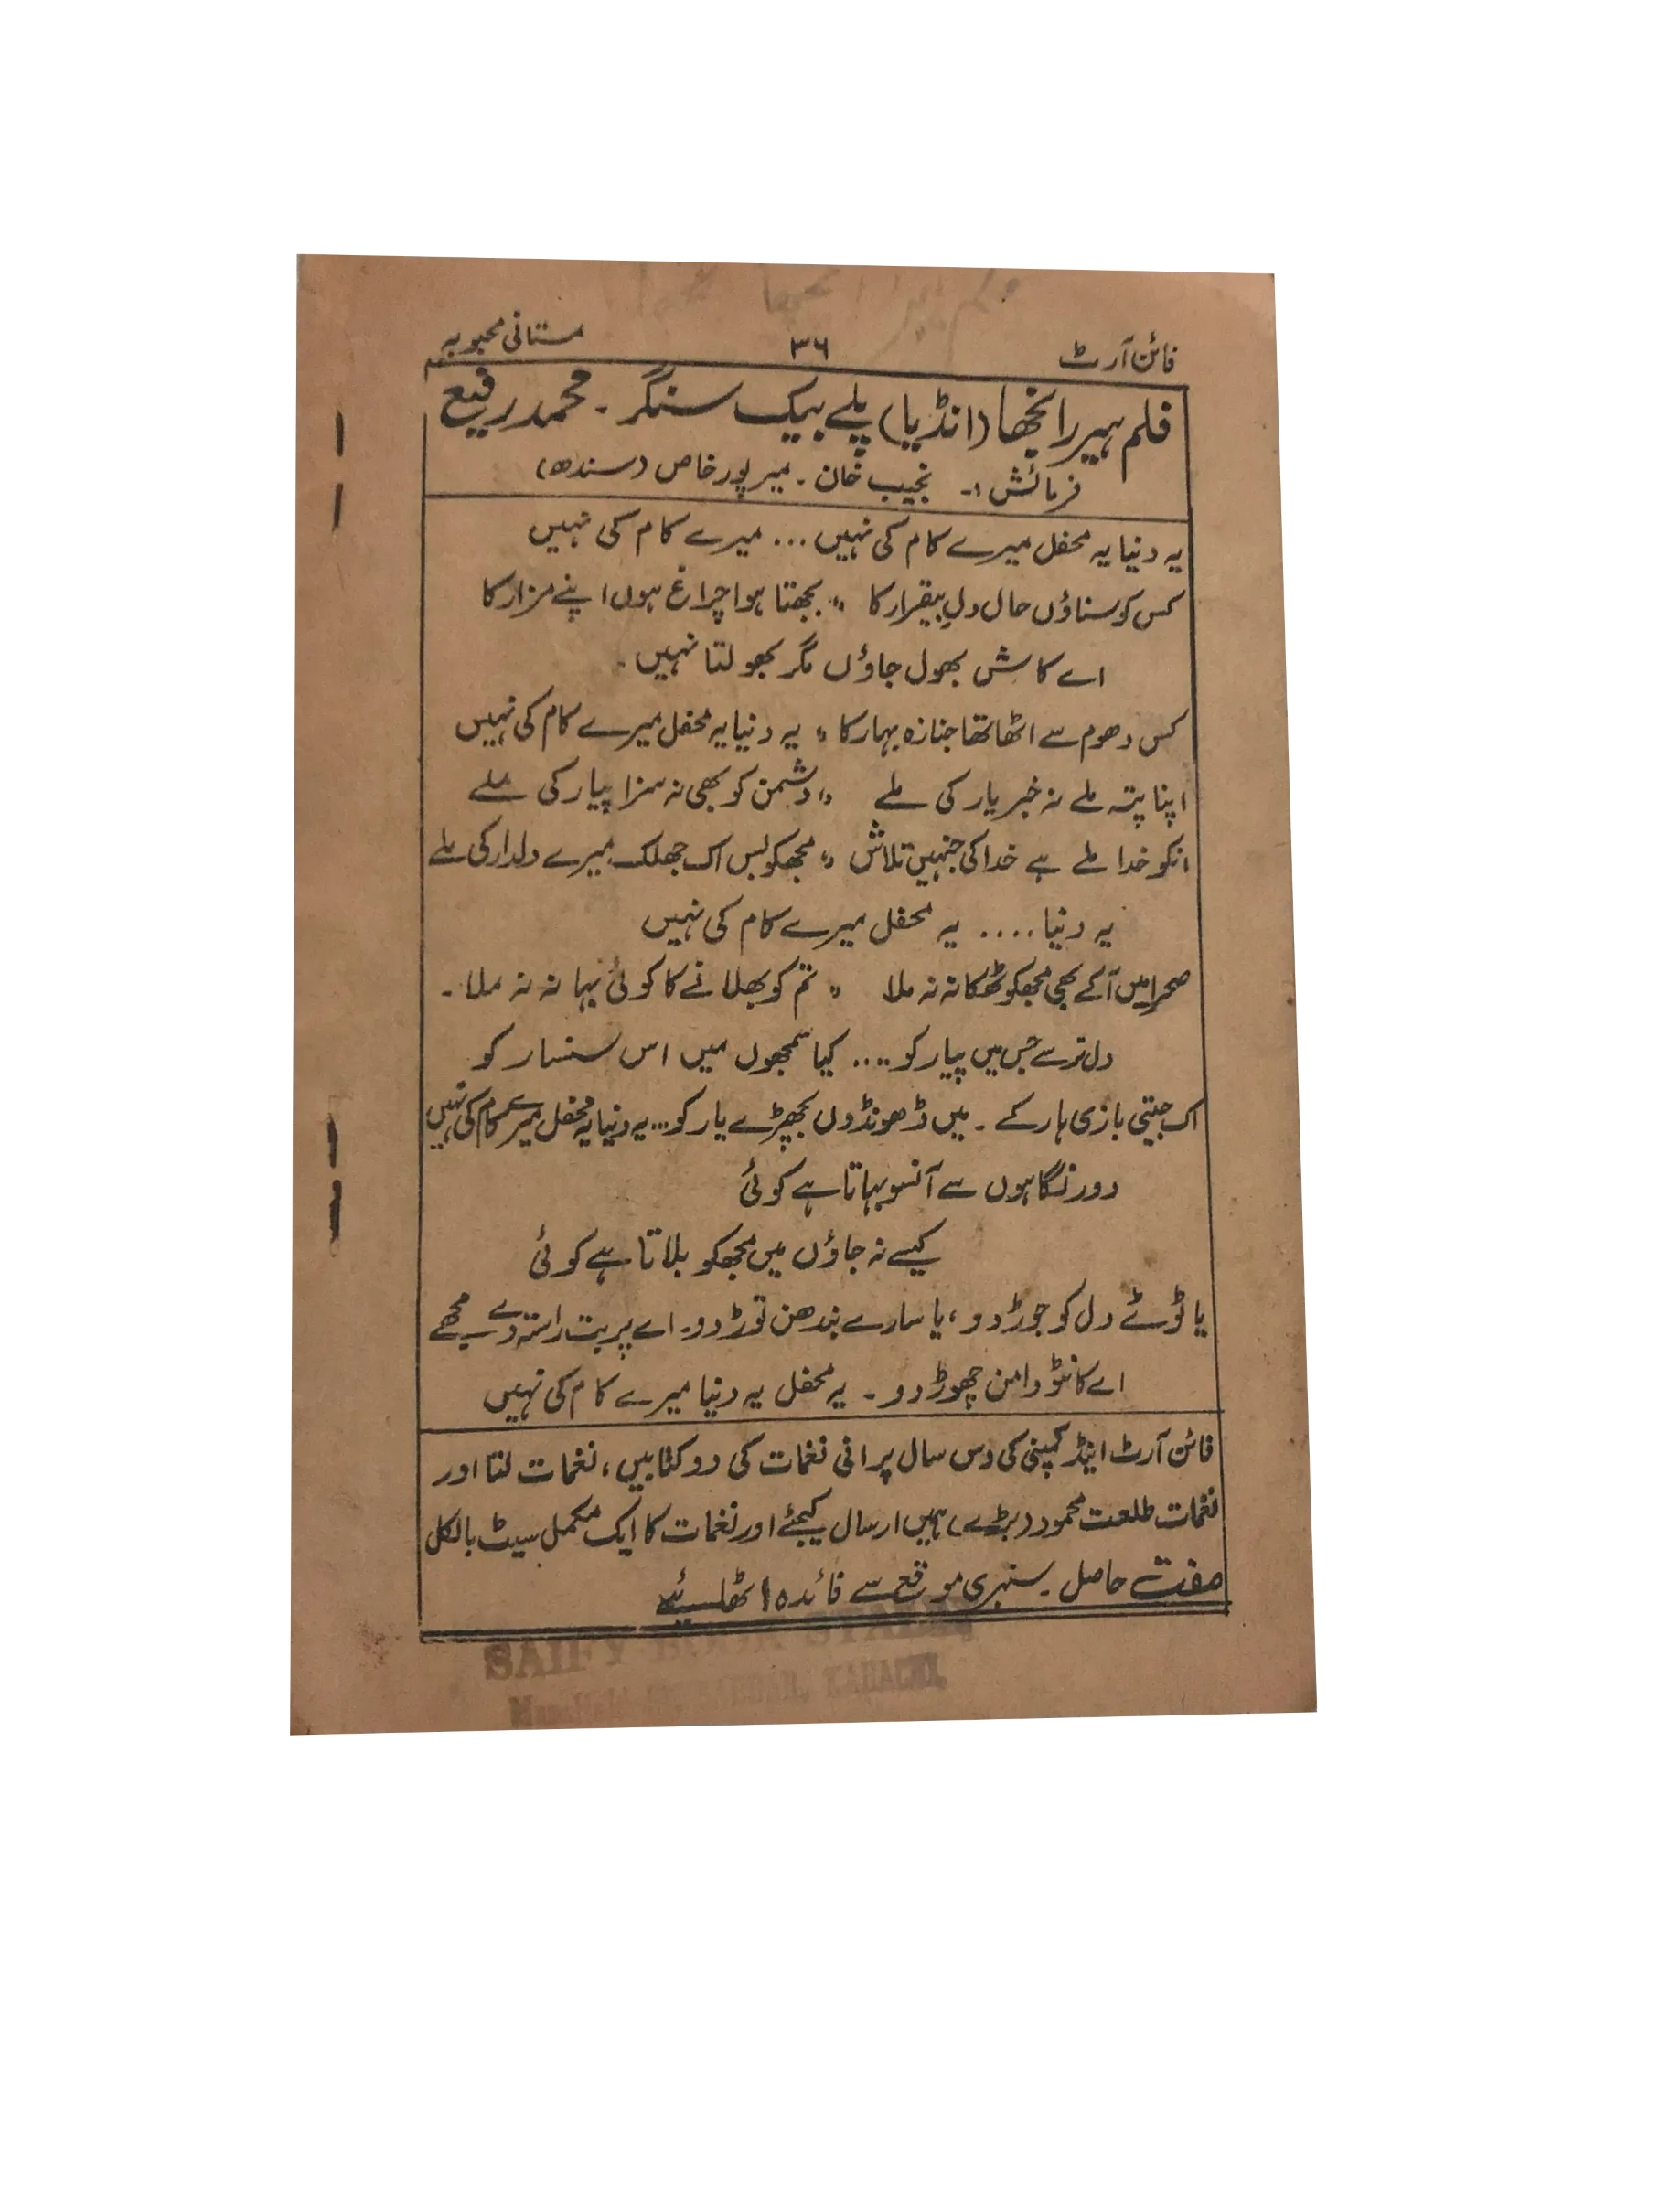 فائن آرٹ ۳۶ مستانی محبوبہ
فلم ہیر رانجھا (انڈیا) پلے بیک سنگر ۔ محمد رفیع
فرمائش :۔ نجیب خان ۔ میرپورخاص (سندھ)
یہ دنیا یہ محفل میرے کام کی نہیں ... میرے کام کی نہیں
کس کو سناؤں حال دلِ بیقرار کا ؞ بجھتا ہوا چراغ ہوں اپنے مزار کا
اے کاش بھول جاؤں مگر بھولتا نہیں ۔
کس دھوم سے اٹھا تھا جنازہ بہار کا ؞ یہ دنیا یہ محفل میرے کام کی نہیں
اپنا پتہ ملے نہ خبر یار کی ملے ؞ دشمن کو بھی نہ سزا پیار کی ملے
انکو خدا ملے ہے خدا کی جنہیں تلاش ؞ مجھکو بس اک جھلک میرے دلدار کی ملے
یہ دنیا .... یہ محفل میرے کام کی نہیں
صحرا میں آکے بھی مجھکو ٹھکانہ نہ ملا ؞ تم کو بھلانے کا کوئی بہانہ نہ ملا ۔
دل ترسے جس میں پیار کو .... کیا سمجھوں میں اس سنسار کو
اک جیتی بازی ہار کے ۔ میں ڈھونڈوں بچھڑے یار کو ... یہ دنیا یہ محفل میرے کام کی نہیں
دور نگاہوں سے آنسو بہاتا ہے کوئی
کیسے نہ جاؤں میں مجھکو بلاتا ہے کوئی
یا ٹوٹے دل کو جوڑ دو ، یا سارے بندھن توڑ دو ۔ اے پربت راستہ دے مجھے
اے کانٹو دامن چھوڑ دو ۔ یہ محفل یہ دنیا میرے کام کی نہیں
فائن آرٹ اینڈ کمپنی کی دس سال پرانی نغمات کی دو کتابیں ، نغمات لتا اور
نغمات طلعت محمود (بڑے) ہمیں ارسال کیجئے اور نغمات کا ایک مکمل سیٹ بالکل
مفت حاصل ۔ سنہری موقع سے فائدہ اٹھائیے
SAIFY BOOK STALL,
SADDAR, KARACHI.